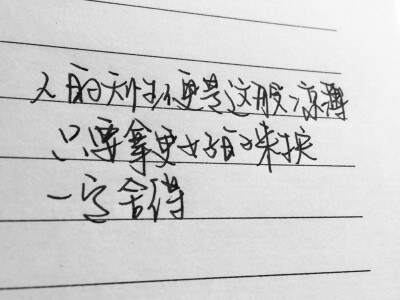 人的天性便是这般凉薄
只要拿更好的来换
一定舍得